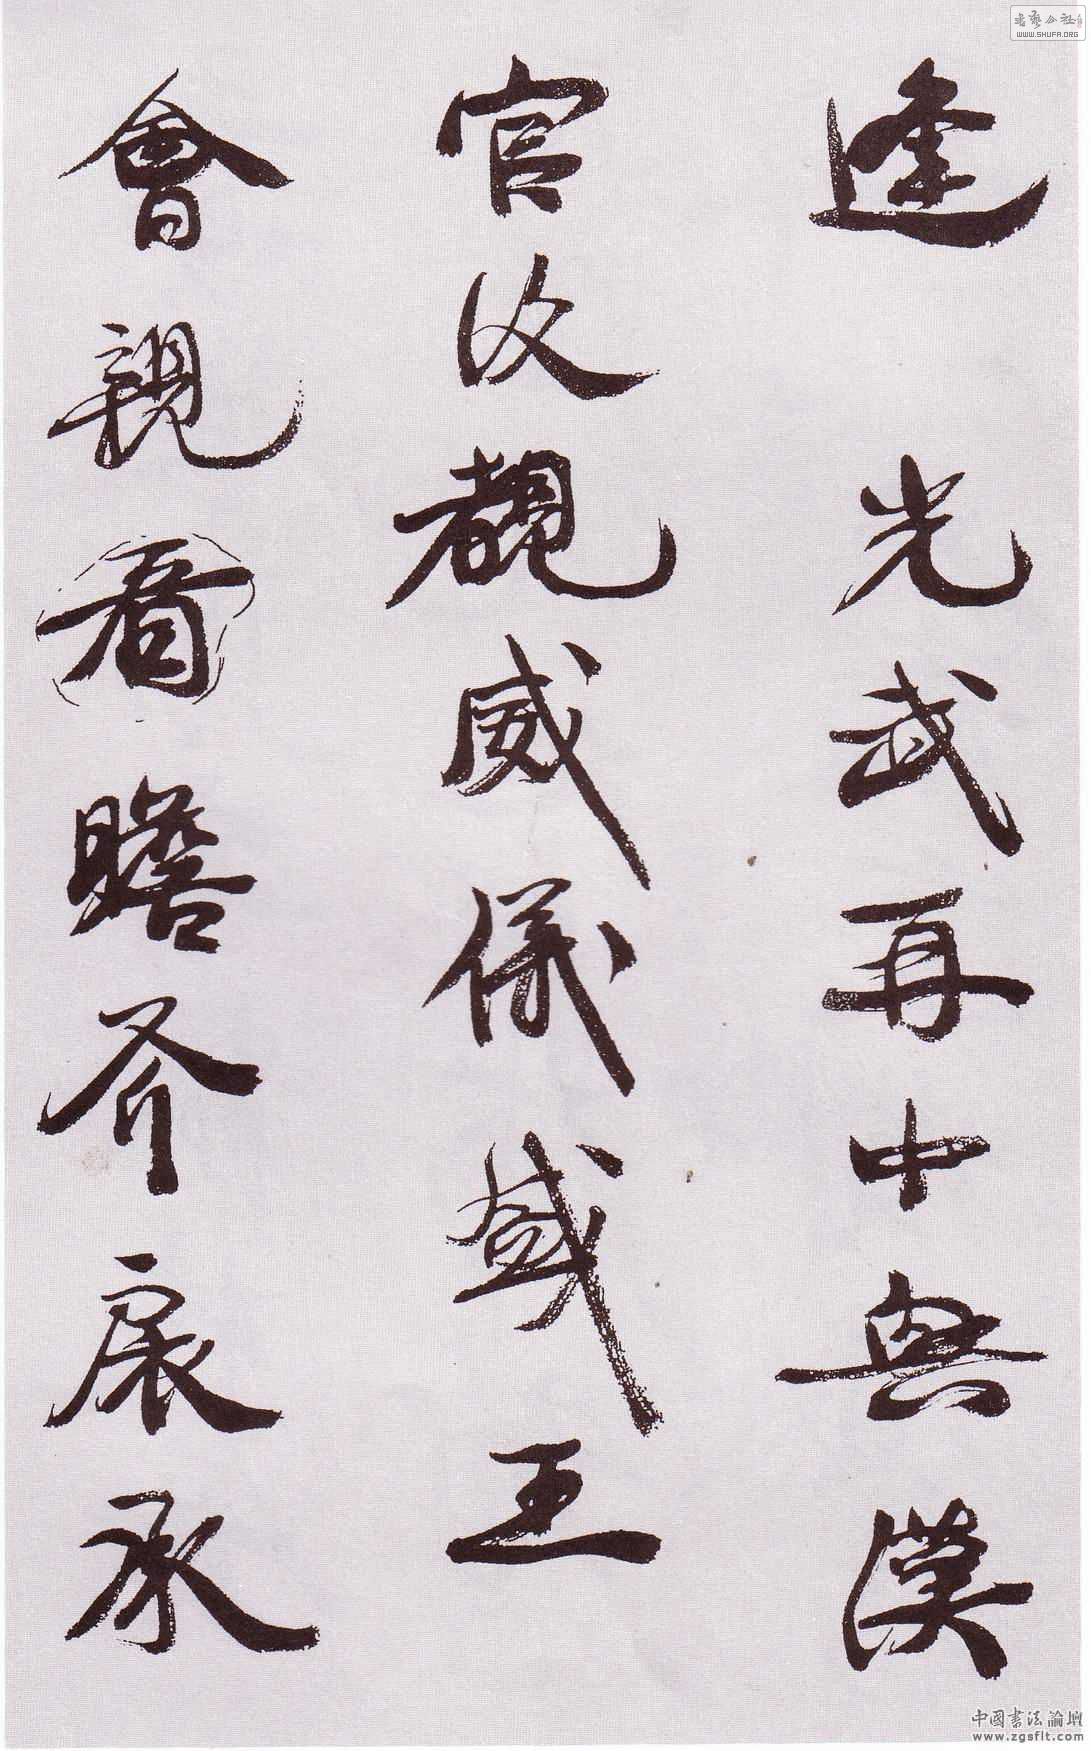 逢 光武再中興漢
官仪覩威儀盛王
會親看瞻齐扆承
书艺公社
WWW.SHUFA.ORG
中國書法論壇
www.zgsflt.com